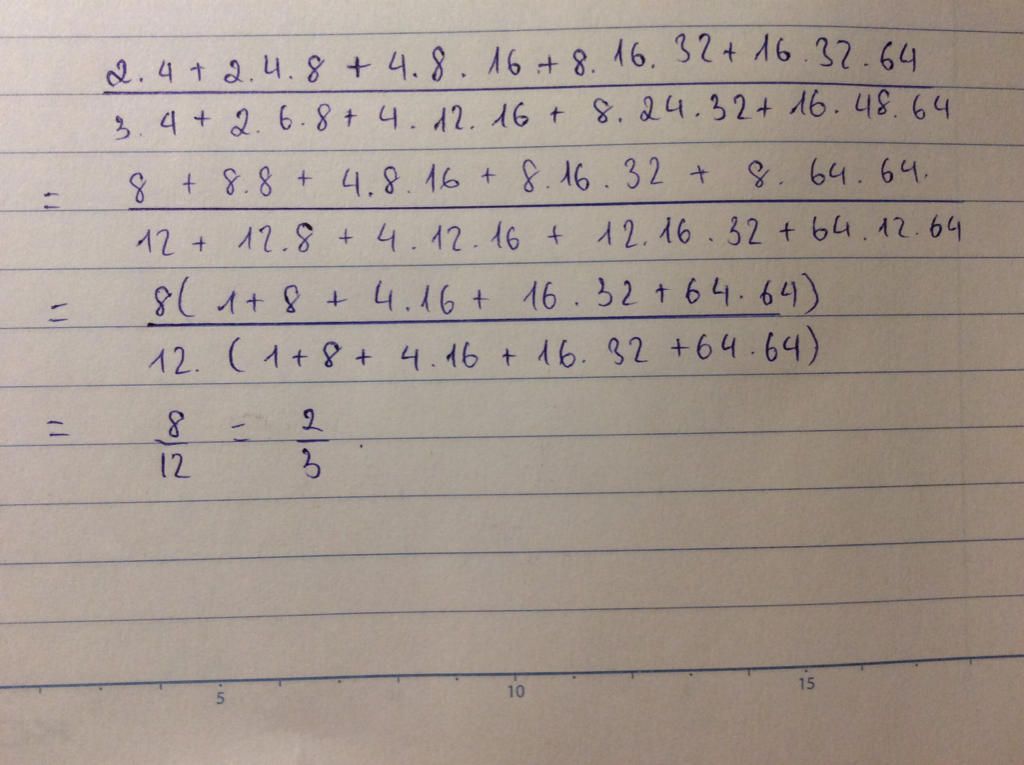 2.4 + 2.4.8 + 4.8.16 + 8.16.32 + 16.32.64
3.4 + 2.6.8 + 4.12.16 + 8.24.32 + 16.48.64
= 8 + 8.8 + 4.8.16 + 8.16.32 + 8.64.64.
12 + 12.8 + 4.12.16 + 12.16.32 + 64.12.64
= 8( 1 + 8 + 4.16 + 16.32 + 64.64)
12. ( 1 + 8 + 4.16 + 16.32 + 64.64)
= 8 = 2
12 3
5 10 15